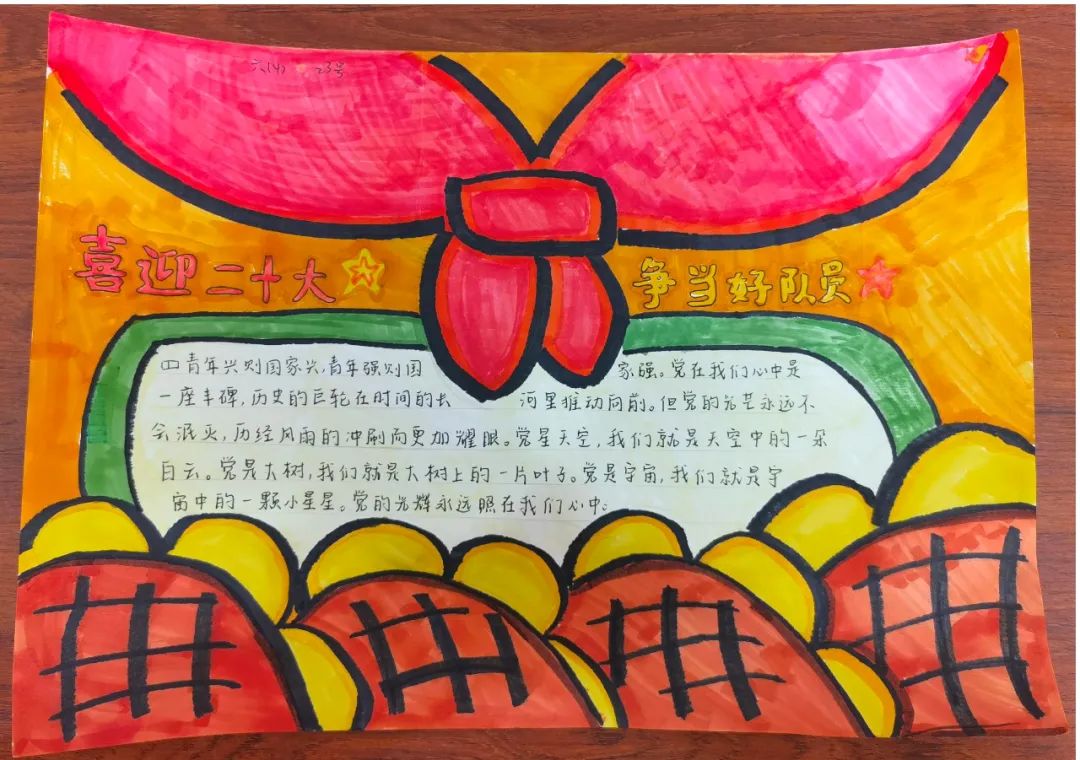 六(4) 23号
喜迎二十大
争当好队员
四青年兴则国家兴,青年强则国家强。党在我们心中是
一座丰碑,历史的巨轮在时间的长河里推动向前。但党的光芒永远不
会泯灭,历经风雨的冲刷而更加耀眼。党星天空,我们就是天空中的一朵
白云。党是大树,我们就是大树上的一片叶子。党是宇宙,我们就是宇
宙中的一颗小星星。党的光辉永远照在我们心中。